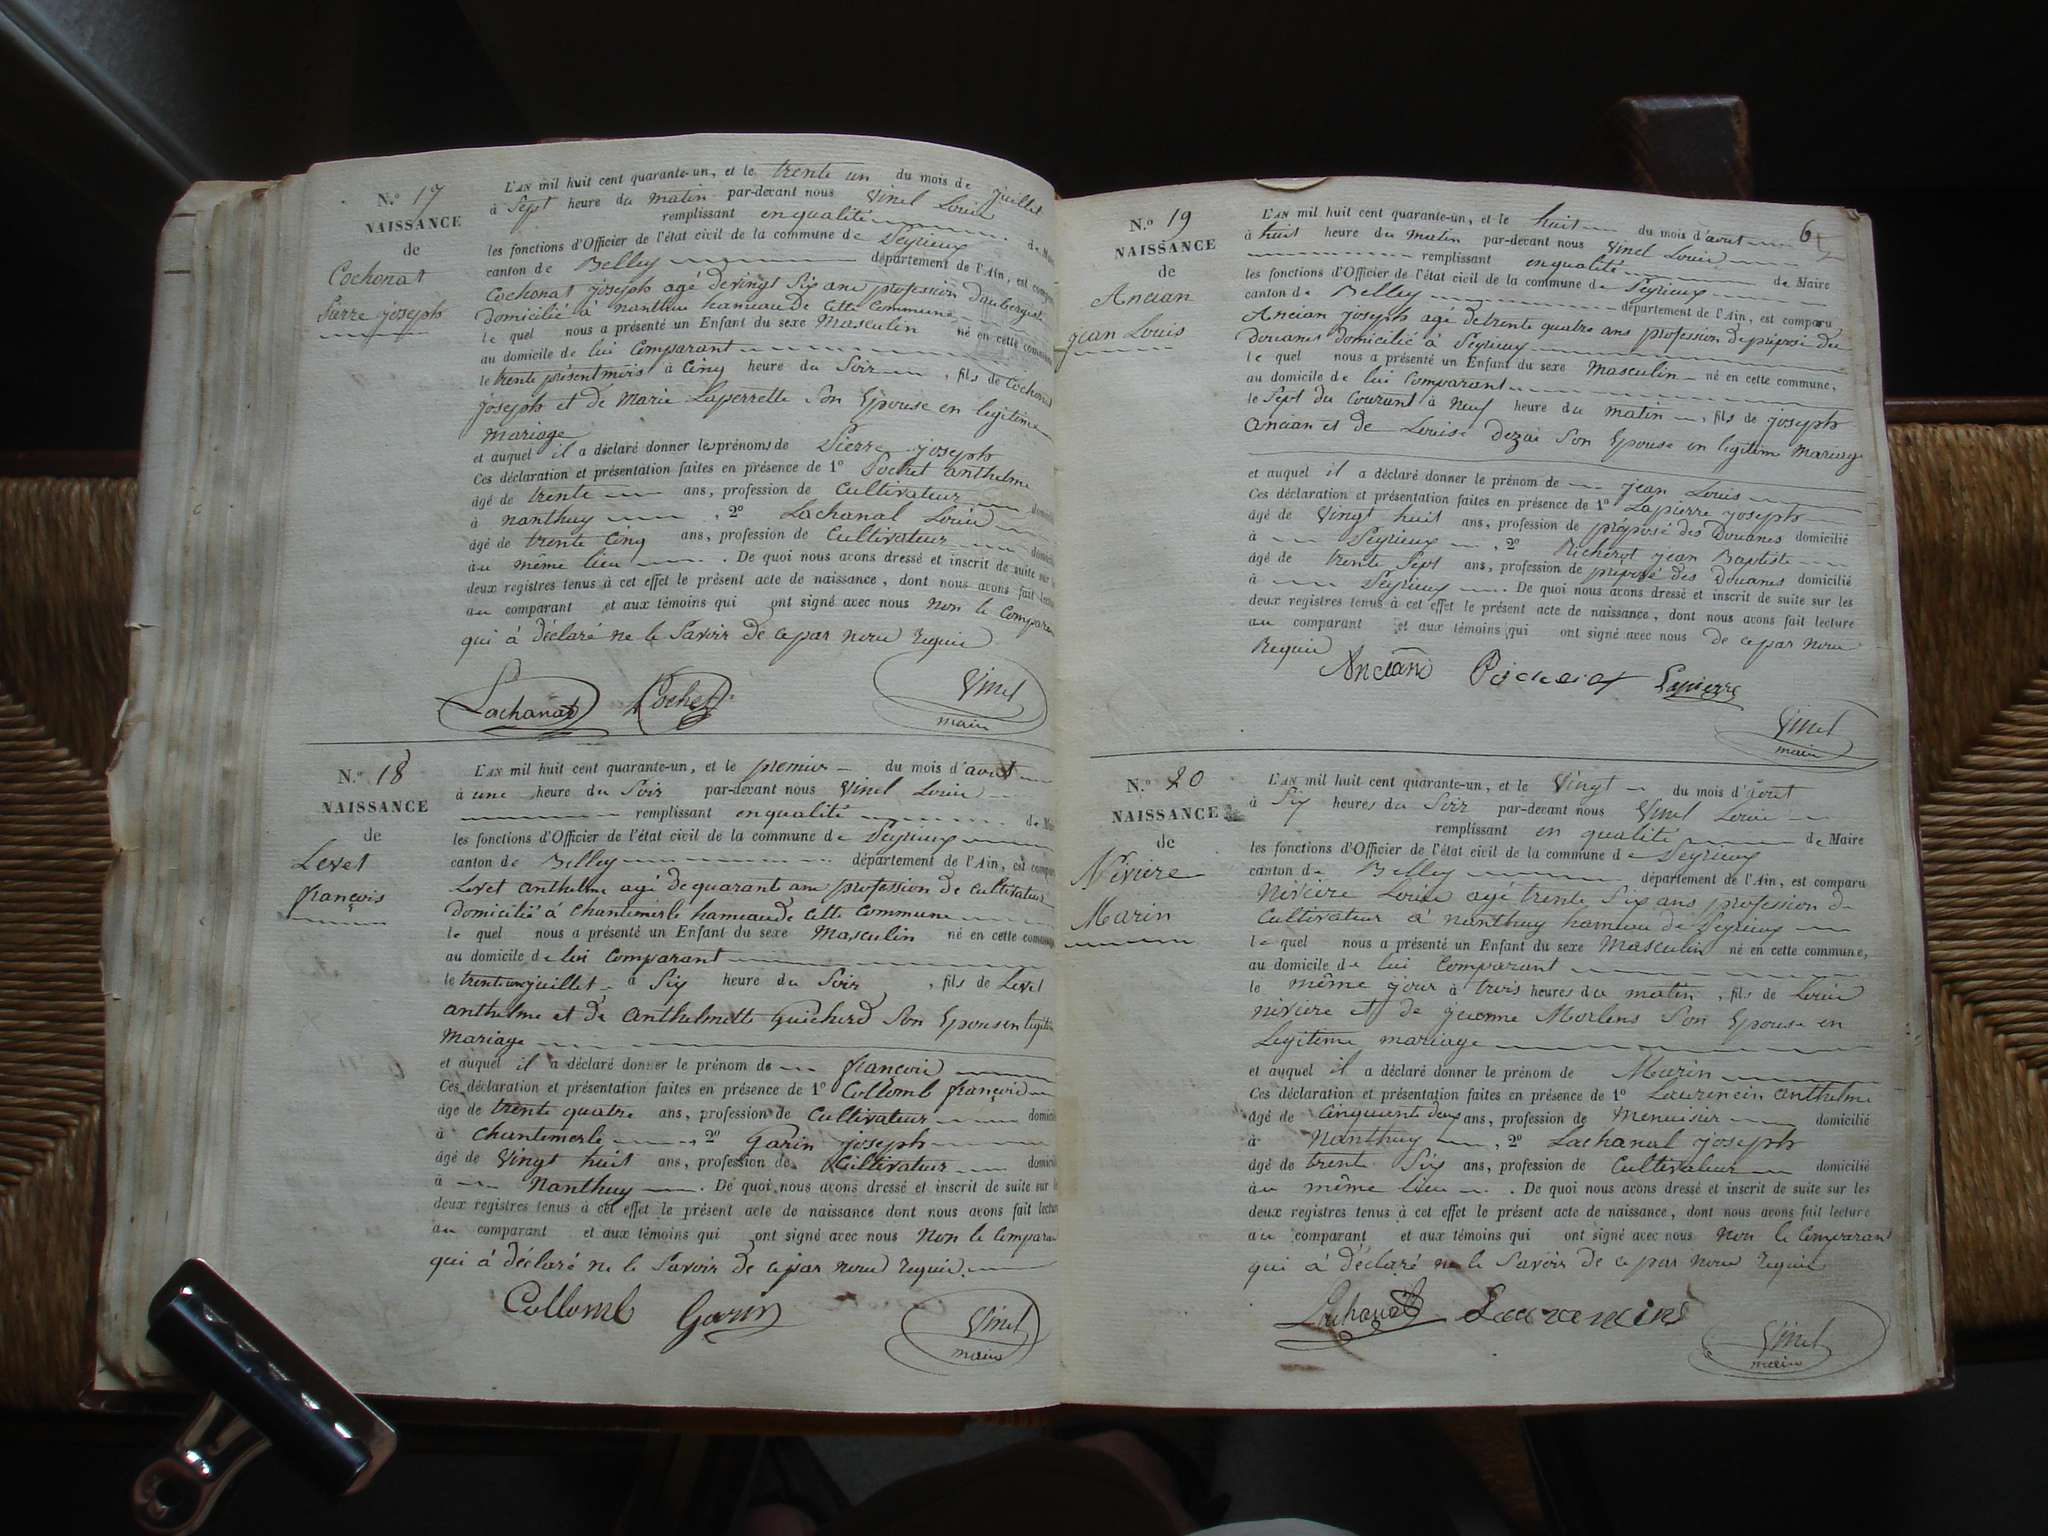 N.º 17
NAISSANCE
de
Cochonat
Pierre joseph
L'AN mil huit cent quarante-un, et le trente un du mois de juillet
à Sept heure du matin par-devant nous Vinel Louis
remplissant en qualité de Maire
les fonctions d'Officier de l'état civil de la commune de Peyrieux
canton de Belley département de l'Ain, est comparu
Cochonat joseph agé de vingt Six ans profession d'aubergiste
domicilié à nanthuy hameau de Cette Commune
le quel nous a présenté un Enfant du sexe Masculin né en cette commune
au domicile de lui Comparant
le trente présent mois à Cinq heure du Soir , fils de Cochonat
joseph et de Marie Laperrette Son Epouse en legitime
Mariage
et auquel il a déclaré donner les prénoms de Pierre joseph
Ces déclaration et présentation faites en présence de 1º Pochet anthelme
âgé de trente ans, profession de Cultivateur domicilié
à nanthuy , 2º Lachanal Louis
âgé de trente Cinq ans, profession de Cultivateur domicilié
au même lieu . De quoi nous avons dressé et inscrit de suite sur les
deux registres tenus à cet effet le présent acte de naissance, dont nous avons fait lecture
au comparant et aux témoins qui ont signé avec nous Non le Comparant
qui à déclaré ne le Savoir de ce par nous requis
Lachanal Pochet Vinel
maire
N.º 18
NAISSANCE
de
Levet
françois
L'AN mil huit cent quarante-un, et le premier du mois d'aout
à une heure du Soir par-devant nous Vinel Louis
remplissant en qualité de Maire
les fonctions d'Officier de l'état civil de la commune de Peyrieux
canton de Belley département de l'Ain, est comparu
Levet anthelme agé de quarante ans profession de Cultivateur
domicilié à Chantemerle hameau de Cette Commune
le quel nous a présenté un Enfant du sexe Masculin né en cette commune
au domicile de lui Comparant
le trente un juillet à Six heure du Soir , fils de Levet
anthelme et de Anthelmette Guicherd Son Epouse en legitime
Mariage
et auquel il a déclaré donner le prénom de françois
Ces déclaration et présentation faites en présence de 1º Collomb françois
âgé de trente quatre ans, profession de Cultivateur domicilié
à Chantemerle , 2º Garin joseph
âgé de Vingt huit ans, profession de Cultivateur domicilié
à Nanthuy . De quoi nous avons dressé et inscrit de suite sur les
deux registres tenus à cet effet le présent acte de naissance dont nous avons fait lecture
au comparant et aux témoins qui ont signé avec nous Non le Comparant
qui à déclaré ne le Savoir de ce par nous requis.
Collomb Garin Vinel
maire
6
N.º 19
NAISSANCE
de
Ancian
jean Louis
L'AN mil huit cent quarante-un, et le huit du mois d'aout
à huit heure du Matin par-devant nous Vinel Louis
remplissant en qualité de Maire
les fonctions d'Officier de l'état civil de la commune de Peyrieux
canton de Belley département de l'Ain, est comparu
Ancian joseph agé de trente quatre ans profession de préposé des
Douanes domicilié à Peyrieux
le quel nous a présenté un Enfant du sexe Masculin né en cette commune,
au domicile de lui Comparant
le Sept du Courant à Neuf heure du matin , fils de joseph
Ancian et de Louise Dezai Son Epouse en legitime Mariage
et auquel il a déclaré donner le prénom de jean Louis
Ces déclaration et présentation faites en présence de 1º Lapierre joseph
âgé de Vingt huit ans, profession de préposé des Douanes domicilié
à Peyrieux , 2º Picherot jean Baptiste
âgé de trente Sept ans, profession de préposé des Douanes domicilié
à Peyrieux . De quoi nous avons dressé et inscrit de suite sur les
deux registres tenus à cet effet le présent acte de naissance, dont nous avons fait lecture
au comparant et aux témoins qui ont signé avec nous de ce par nous
Requis
Ancian Picherot Lapierre
Vinel
maire
N.º 20
NAISSANCE
de
Niviere
Marin
L'AN mil huit cent quarante-un, et le Vingt du mois d'aout
à Six heures du Soir par-devant nous Vinel Louis
remplissant en qualité de Maire
les fonctions d'Officier de l'état civil de la commune de Peyrieux
canton de Belley département de l'Ain, est comparu
Niviere Louis agé trente Six ans profession de
Cultivateur à Nanthuy hameau de Peyrieux
le quel nous a présenté un Enfant du sexe Masculin né en cette commune,
au domicile de lui Comparant
le même jour à trois heures du matin , fils de Louis
niviere et de jeanne Morlens Son Epouse en
Legitime mariage
et auquel il a déclaré donner le prénom de Marin
Ces déclaration et présentation faites en présence de 1º Laurencin anthelme
âgé de Cinquante deux ans, profession de Menuisier domicilié
à Nanthuy , 2º Lachanal joseph
âgé de trente Six ans, profession de Cultivateur domicilié
au même lieu . De quoi nous avons dressé et inscrit de suite sur les
deux registres tenus à cet effet le présent acte de naissance, dont nous avons fait lecture
au comparant et aux témoins qui ont signé avec nous Non le Comparant
qui à déclaré ne le Savoir de ce par nous requis
Lachanal Laurencin
Vinel
maire